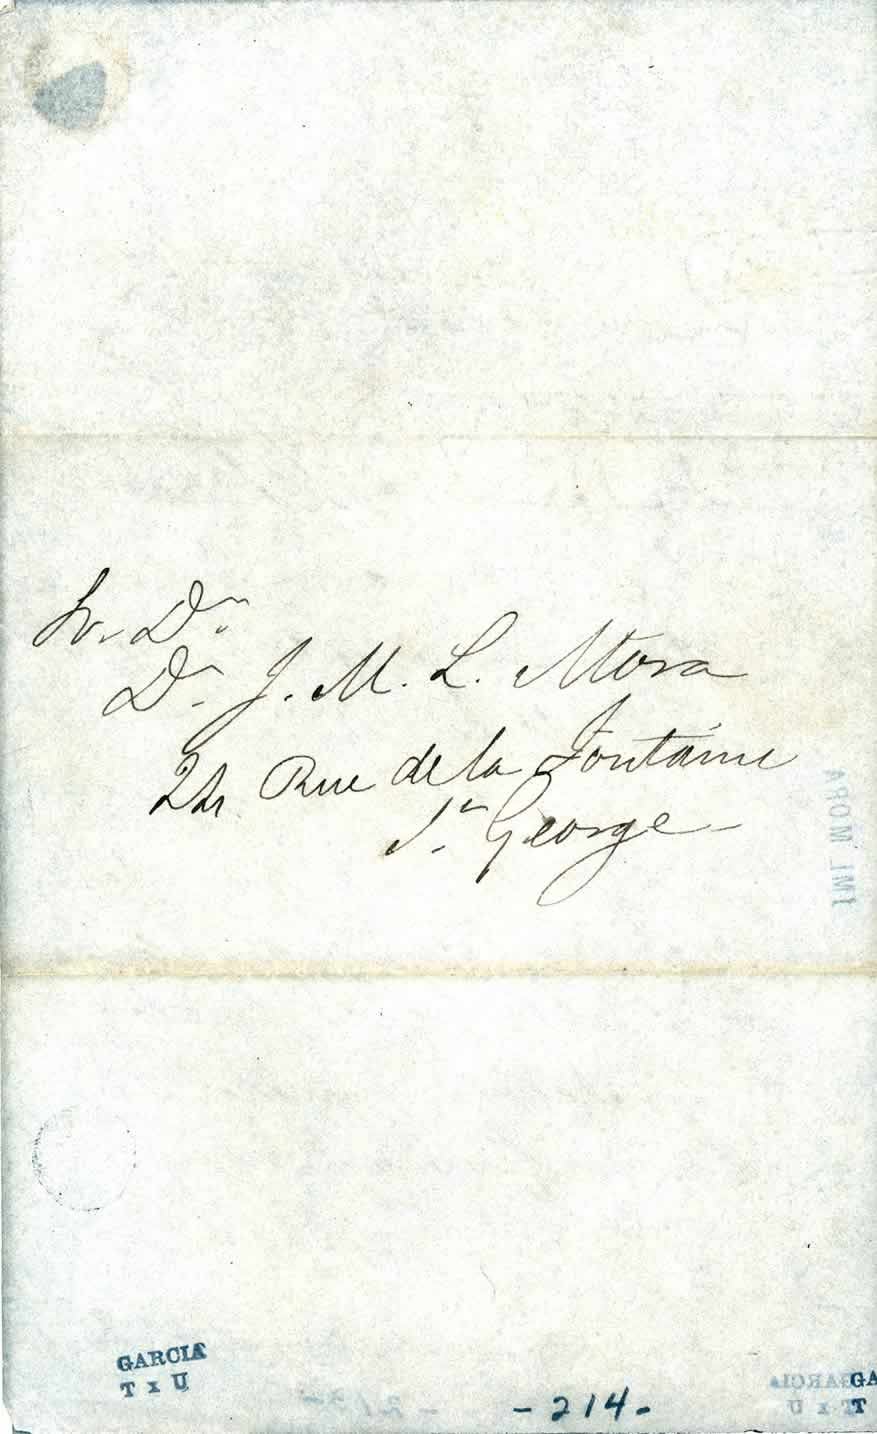 Sr. Dn.
Dr. J. M. L. Mora
24 Rue de la Fontaine
St. George
JML MORA
GARCIA
T x U
- 214 -
GARCIA
T x U
GA
T